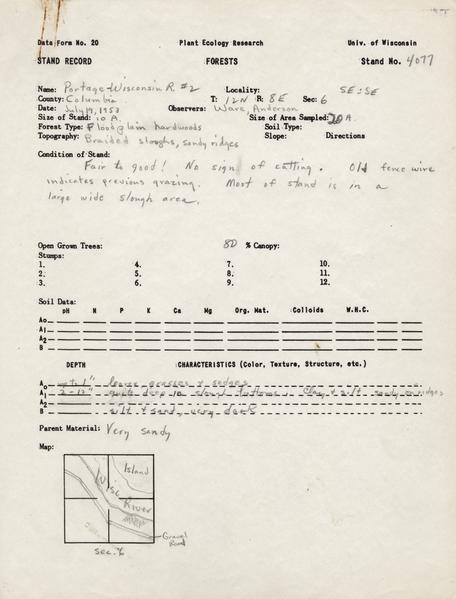 Data Form No. 20 Plant Ecology Research Univ. of Wisconsin
STAND RECORD FORESTS Stand No. 4077
Name: Portage-Wisconsin R. #2 Locality: SE:SE
County: Columbia T: 12N R: 8E Sec: 6
Date: July 14, 1953 Observers: Ware, Anderson
Size of Stand: 10 A. Size of Area Sampled: 20 A.
Forest Type: Floodplain hardwoods Soil Type:
Topography: Braided sloughs, sandy ridges Slope: Directions
Condition of Stand:
Fair to good! No sign of cutting. Old fence wire
indicates previous grazing. Most of stand is in a
large wide slough area.
Open Grown Trees: 80 % Canopy:
Stumps:
1. 4. 7. 10.
2. 5. 8. 11.
3. 6. 9. 12.
Soil Data:
pH N P K Ca Mg Org. Mat. Colloids W.H.C.
Ao
A1
A2
B
DEPTH CHARACTERISTICS (Color, Texture, Structure, etc.)
Ao 1" leaves grasses & sedges
A1 2-12" quite deep in slough bottoms. Clay & silt sandy on ridges
A2
B silt & sand, very dark
Parent Material: Very sandy
Map:
Island
Wisc River
Gravel
Road
Sec. 6